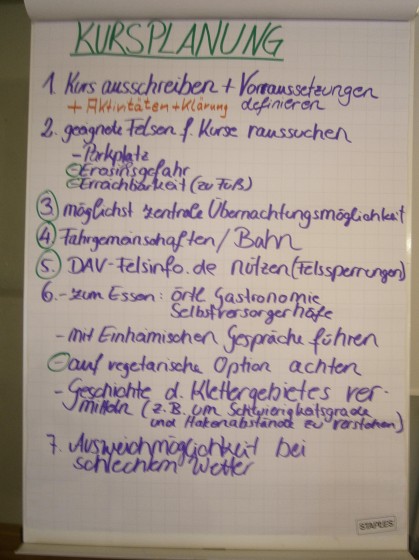 KURSPLANUNG
1. Kurs ausschreiben + Vorraussetzungen
+ Aktivitäten + Klärung definieren
2. geeignete Felsen f. Kurse raussuchen
- Parkplatz
- Erosinsgefahr
- Errachbarkeit (zu Fuß)
3. möglichst zentrale Übernachtungsmöglichkeit
4. Fahrgemeinschaften / Bahn
5. DAV-Felsinfo.de nützen (Felssperrungen)
6. - zum Essen: örtl. Gastronomie
Selbstversorgerhöfe
- mit Einhamischen Gespräche führen
- auf vegetarische Option achten
- Geschichte d. Klettergebietes ver-
mitteln (z.B. um Schwierigkeitsgrade
und Hakenabstände zu verstehen)
7. Ausweichmöglichkeit bei
schlechtem Wetter
STAPLES